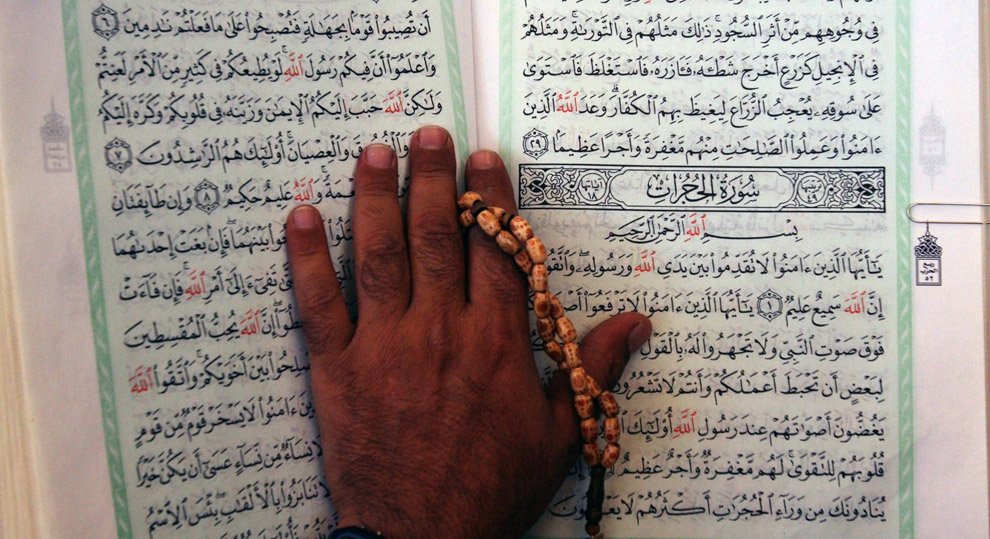 فِى وُجُوهِهِم مِّنْ أَثَرِ ٱلسُّجُودِ ذَٰلِكَ مَثَلُهُمْ فِى ٱلتَّوْرَىٰةِ وَمَثَلُهُمْ
فِى ٱلْإِنجِيلِ كَزَرْعٍ أَخْرَجَ شَطْـَٔهُۥ فَـَٔازَرَهُۥ فَٱسْتَغْلَظَ فَٱسْتَوَىٰ
عَلَىٰ سُوقِهِۦ يُعْجِبُ ٱلزُّرَّاعَ لِيَغِيظَ بِهِمُ ٱلْكُفَّارَ وَعَدَ ٱللَّهُ ٱلَّذِينَ
ءَامَنُوا۟ وَعَمِلُوا۟ ٱلصَّٰلِحَٰتِ مِنْهُم مَّغْفِرَةً وَأَجْرًا عَظِيمًۢا ٢٩
ترتيبها ٤٩ سُورَةُ الحُجُرَاتِ آياتها ١٨
بِسْمِ ٱللَّهِ ٱلرَّحْمَٰنِ ٱلرَّحِيمِ
يَٰٓأَيُّهَا ٱلَّذِينَ ءَامَنُوا۟ لَا تُقَدِّمُوا۟ بَيْنَ يَدَىِ ٱللَّهِ وَرَسُولِهِۦ وَٱتَّقُوا۟
إِنَّ ٱللَّهَ سَمِيعٌ عَلِيمٌ ١ يَٰٓأَيُّهَا ٱلَّذِينَ ءَامَنُوا۟ لَا تَرْفَعُوٓا۟
فَوْقَ صَوْتِ ٱلنَّبِىِّ وَلَا تَجْهَرُوا۟ لَهُۥ بِٱلْقَوْلِ
لِبَعْضٍ أَن تَحْبَطَ أَعْمَٰلُكُمْ وَأَنتُمْ لَا تَشْعُرُونَ
يَغُضُّونَ أَصْوَٰتَهُمْ عِندَ رَسُولِ ٱللَّهِ أُو۟لَٰٓئِكَ
قُلُوبَهُمْ لِلتَّقْوَىٰ لَهُم مَّغْفِرَةٌ وَأَجْرٌ عَظِيمٌ
يُنَادُونَكَ مِن وَرَآءِ ٱلْحُجُرَٰتِ أَكْثَرُهُمْ لَا
أَن تُصِيبُوا۟ قَوْمًۢا بِجَهَٰلَةٍ فَتُصْبِحُوا۟ عَلَىٰ مَا فَعَلْتُمْ نَٰدِمِينَ ٦
وَٱعْلَمُوٓا۟ أَنَّ فِيكُمْ رَسُولَ ٱللَّهِ لَوْ يُطِيعُكُمْ فِى كَثِيرٍ مِّنَ ٱلْأَمْرِ لَعَنِتُّمْ
وَلَٰكِنَّ ٱللَّهَ حَبَّبَ إِلَيْكُمُ ٱلْإِيمَٰنَ وَزَيَّنَهُۥ فِى قُلُوبِكُمْ وَكَرَّهَ إِلَيْكُمُ
وَٱلْعِصْيَانَ أُو۟لَٰٓئِكَ هُمُ ٱلرَّٰشِدُونَ ٧
وَٱللَّهُ عَلِيمٌ حَكِيمٌ ٨ وَإِن طَآئِفَتَانِ
بَيْنَهُمَا فَإِنۢ بَغَتْ إِحْدَىٰهُمَا
تَفِىٓءَ إِلَىٰٓ أَمْرِ ٱللَّهِ فَإِن فَآءَتْ
إِنَّ ٱللَّهَ يُحِبُّ ٱلْمُقْسِطِينَ
بَيْنَ أَخَوَيْكُمْ وَٱتَّقُوا۟ ٱللَّهَ
ءَامَنُوا۟ لَا يَسْخَرْ قَوْمٌ مِّن قَوْمٍ
نِسَآءٌ مِّن نِّسَآءٍ عَسَىٰٓ أَن يَكُنَّ خَيْرًا
تَنَابَزُوا۟ بِٱلْأَلْقَٰبِ بِئْسَ ٱلِٱسْمُ